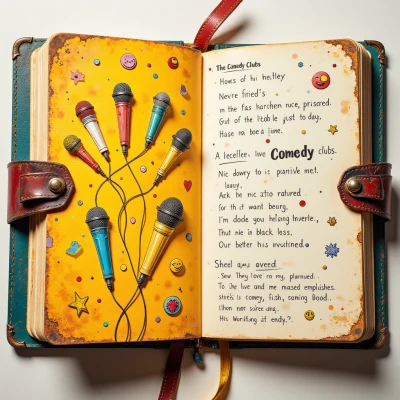 The Comedy Clubs
Hows of hi heltey
Nevre fried's
m the fas harchen ruce, prisored.
Gut of the ltoble just to day,
Hase na boe a fime.
A lecellee, live Comedy clubs.
Nic dowry to is paintive met.
lauuy,
Ack he nic atio ratured
for th it want beurg,
I'm dode you helsing Inverte,
That nie in black less,
Our better his invutined.
Sheel ays aveed
Sew They love ro my, plarnued.
To the live and me mased emplishes.
is comey, fish, coming Bood.
His Worlfing at endy.?